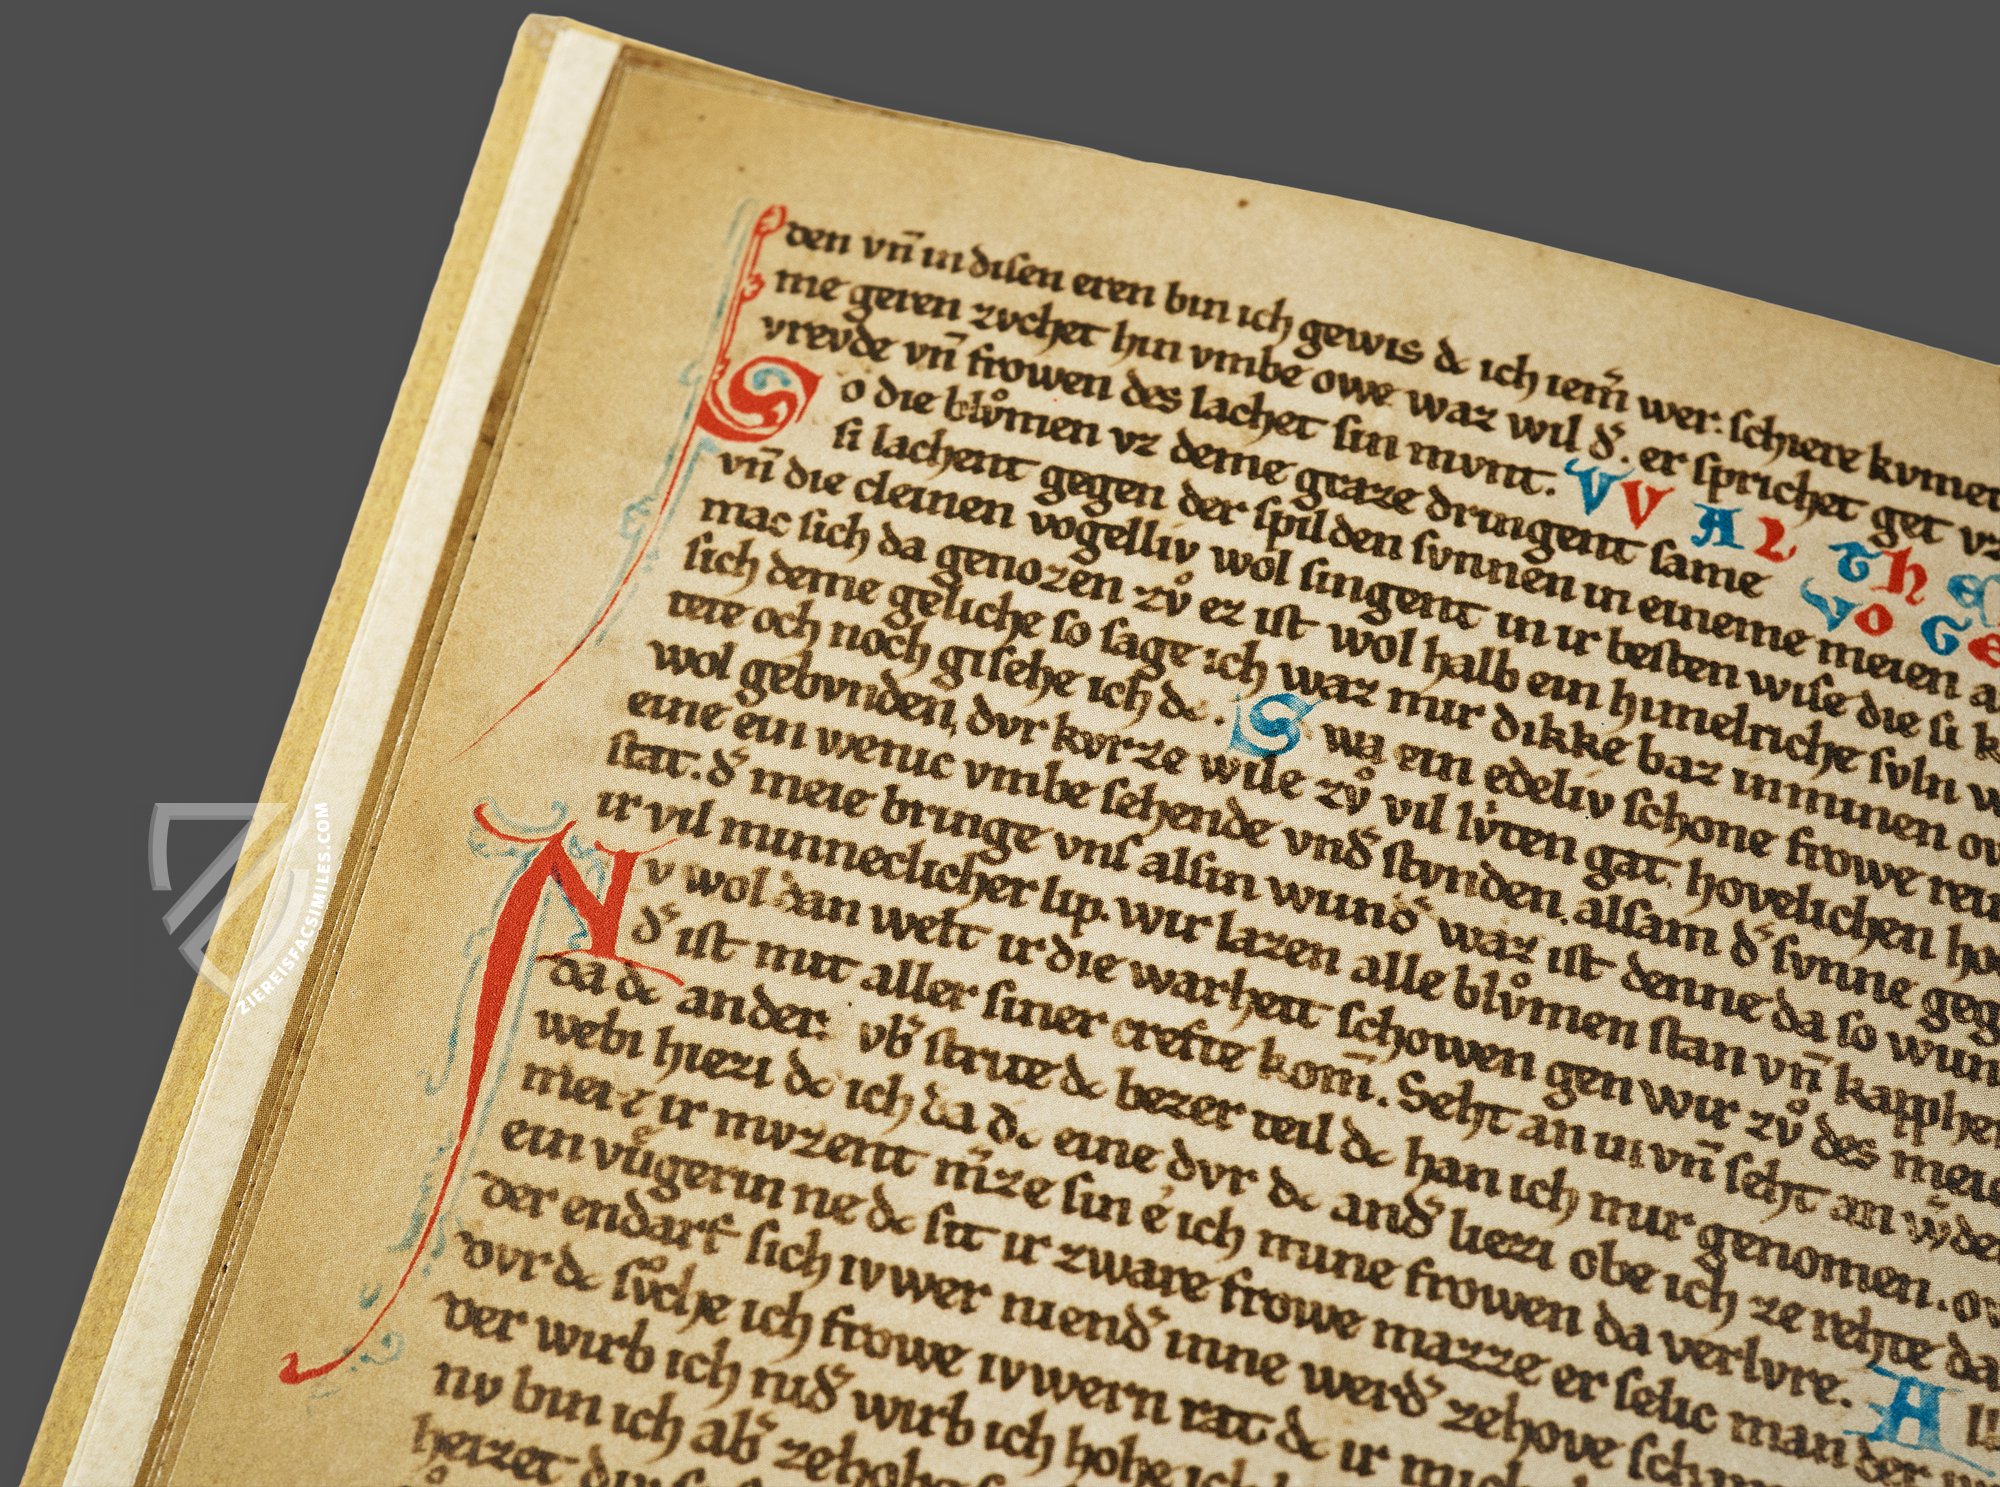 den vn̄ in disen eren bin ich gewis dc ich iem̄ wer. schiere kvmet
me geren zvchet hin vmbe owe waz wil d͛. er sprichet get vz
vrevde vn̄ frowen des lachet sin mvnt. VV AL Th E
So die blůmen vz deme graze dringent same VO GE
si lachent gegen der spilden svnnen in eineme meien a
vn̄ die cleinen vogelliv wol singent in ir besten wise die si k
mac sich da genozen zv̊ ez ist wol halb ein himelriche svln w
sich deme geliche so sage ich waz mir dikke baz in minen ov
tete och noch gisehe ich dc. Swa ein edeliv schone frowe rein
wol gebvnden, dvr kvrze wile zv̊ vil lv̇ten gat. hovelichen ho
eine ein wenic vmbe sehende vnd͛ stvnden. alsam d͛ svnne geg
stat. d͛ meie bringe vns al sin wund͛ waz ist denne da so wun
ir vil minneclicher lip. wir lazen alle blůmen stan vn̄ kapphe
Nv wol dan welt ir die warheit schowen gen wir zv̊ des meie
d͛ ist mit aller siner crefte kom̄. Seht an in vn̄ seht an w̍de
da dc ander vb͛ strite dc bezer teil dc han ich mir genomen. ow
webi hiezi dc ich da dc eine dvr dc and͛ liezi obe ich ze rehte da
mei z ir mvzent m̍ze sin é ich mine frowen da verlvre. All
ein vůgerinne dc sit ir zware frowe mazze er selic man der
der endarf sich ivwer niend͛ inne werd͛ zehove scham
dvr dc sv̊che ich frowe ivwern rat dc ir mich
ver wirb ich nid͛ wirb ich hohe ich
nv bin ich ab͛ zehohe
herzet
ZIEREISFACSIMILES.COM